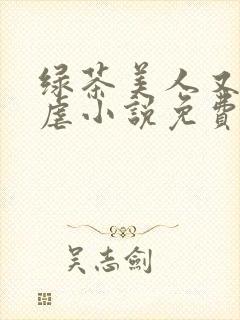 绿茶美人又
虐小説免費
吴志劍